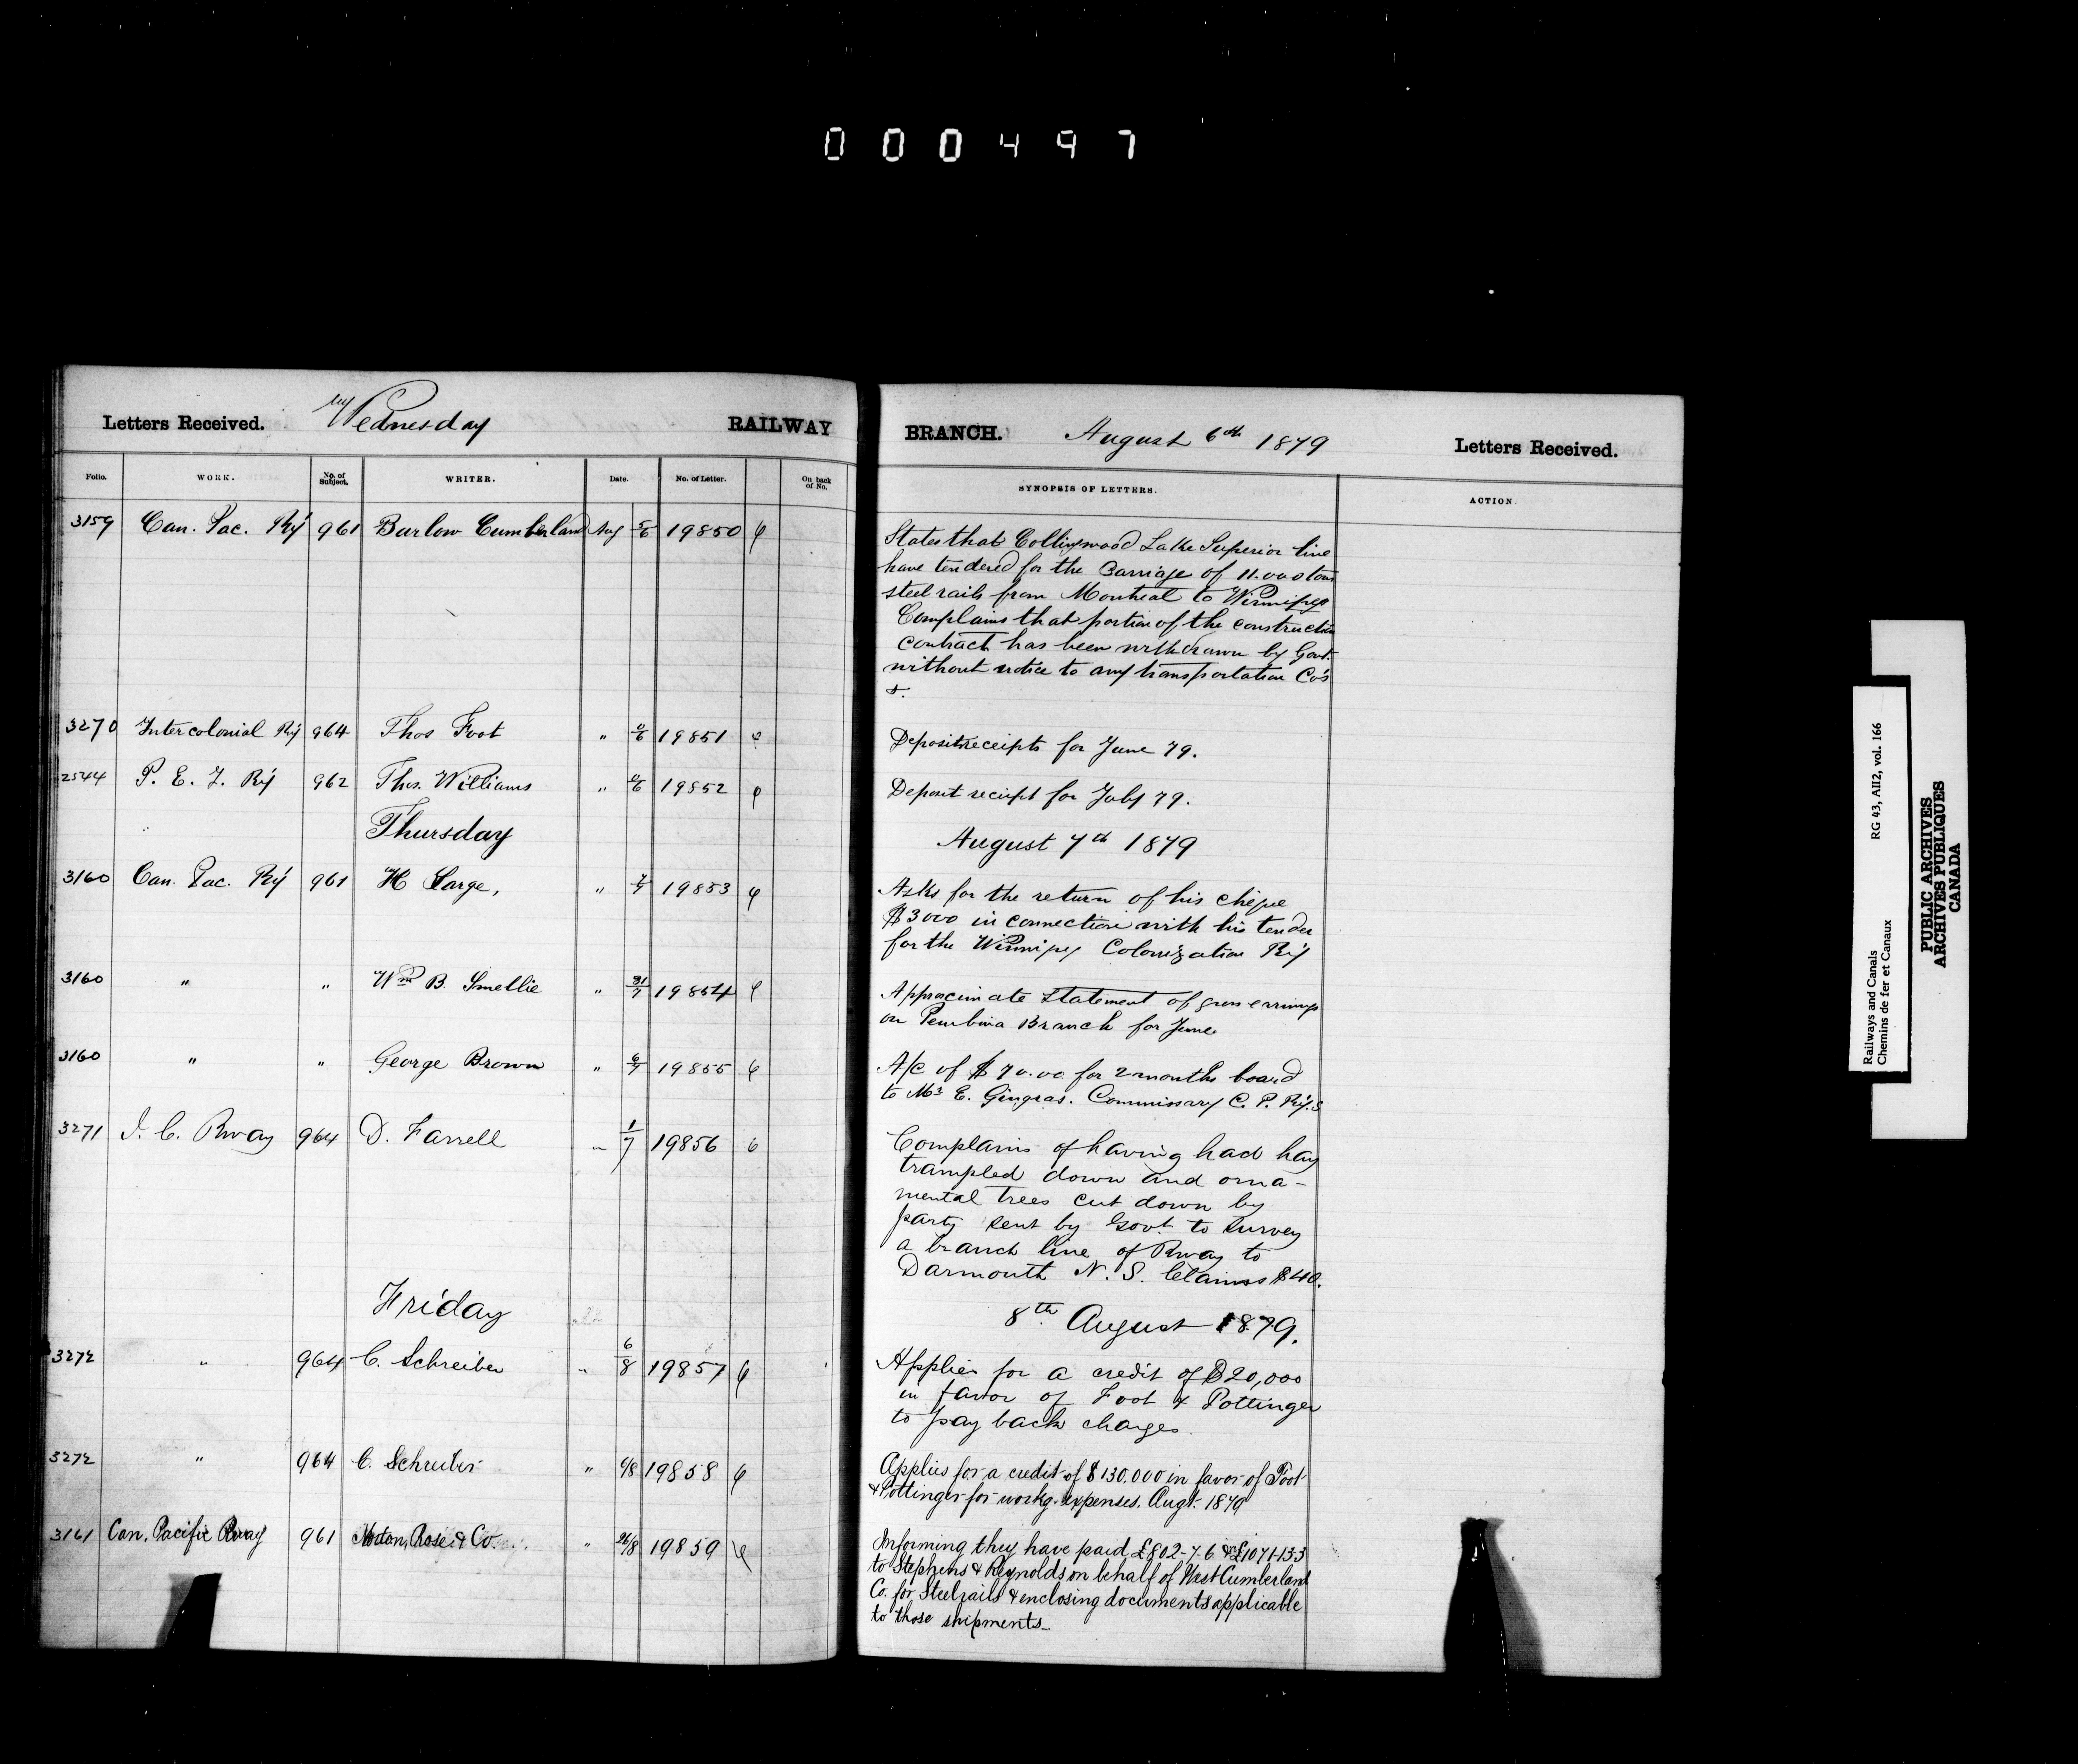 0 0 0 4 9 7
Letters Received. Wednesday RAILWAY BRANCH. August 6th 1879 Letters Received.
Folio. WORK. No. of Subject. WRITER. Date. No. of Letter. On back of No. SYNOPSIS OF LETTERS. ACTION.
3159 Can. Pac. Ry 961 Barlow Cumberland Aug 5/6 19850
States that Collingwood Lake Superior line
have tendered for the Carriage of 11.000 tons
steel rails from Montreal to Winnipeg
Complains that portion of the construction
contract has been withdrawn by Govt.
without notice to any transportation Co's
&.
3270 Intercolonial Ry 964 Thos Foot " 19851 Deposit receipts for June 79.
2544 P. E. I. Ry 962 Thos. Williams " 19852 Deposit receipt for July 79.
Thursday August 7th 1879
3160 Can. Pac. Ry 961 H Large, " 7/7 19853 Asks for the return of his cheque
$3000 in connection with his tender
for the Winnipeg Colonization Ry
3160 " " Wm B. Smellie " 31/7 19854 Approximate statement of gross earnings
on Pembina Branch for June
3160 " " George Brown " 6/7 19855 A/c of $70.00 for 2 months board
to Mr E. Gingras. Commissary C. P. Ry. S
3271 I. C. Rway 964 D. Farrell " 1/7 19856 Complains of having had hay
trampled down and orna-
mental trees cut down by
party sent by Govt to survey
a branch line of Rway to
Darmouth N. S. Claims $40.
Friday 8th August 1879.
3272 " 964 C. Schreiber " 6/8 19857 Applies for a credit of $20,000
in favor of Foot & Pottinger
to pay back charges.
3272 " 964 C. Schreiber " 6/8 19858 Applies for a credit of $130.000 in favor of Foot
& Pottinger for workg. expenses. Augt. 1879
3161 Can. Pacific Rway 961 Morton, Rose & Co. " 26/8 19859 Informing they have paid £802-7-6 & £1071-13-3
to Stephens & Reynolds on behalf of West Cumberland
Co. for Steel rails & enclosing documents applicable
to those shipments.
Railways and Canals RG 43, AII2, vol. 166
Chemins de fer et Canaux
PUBLIC ARCHIVES
ARCHIVES PUBLIQUES
CANADA